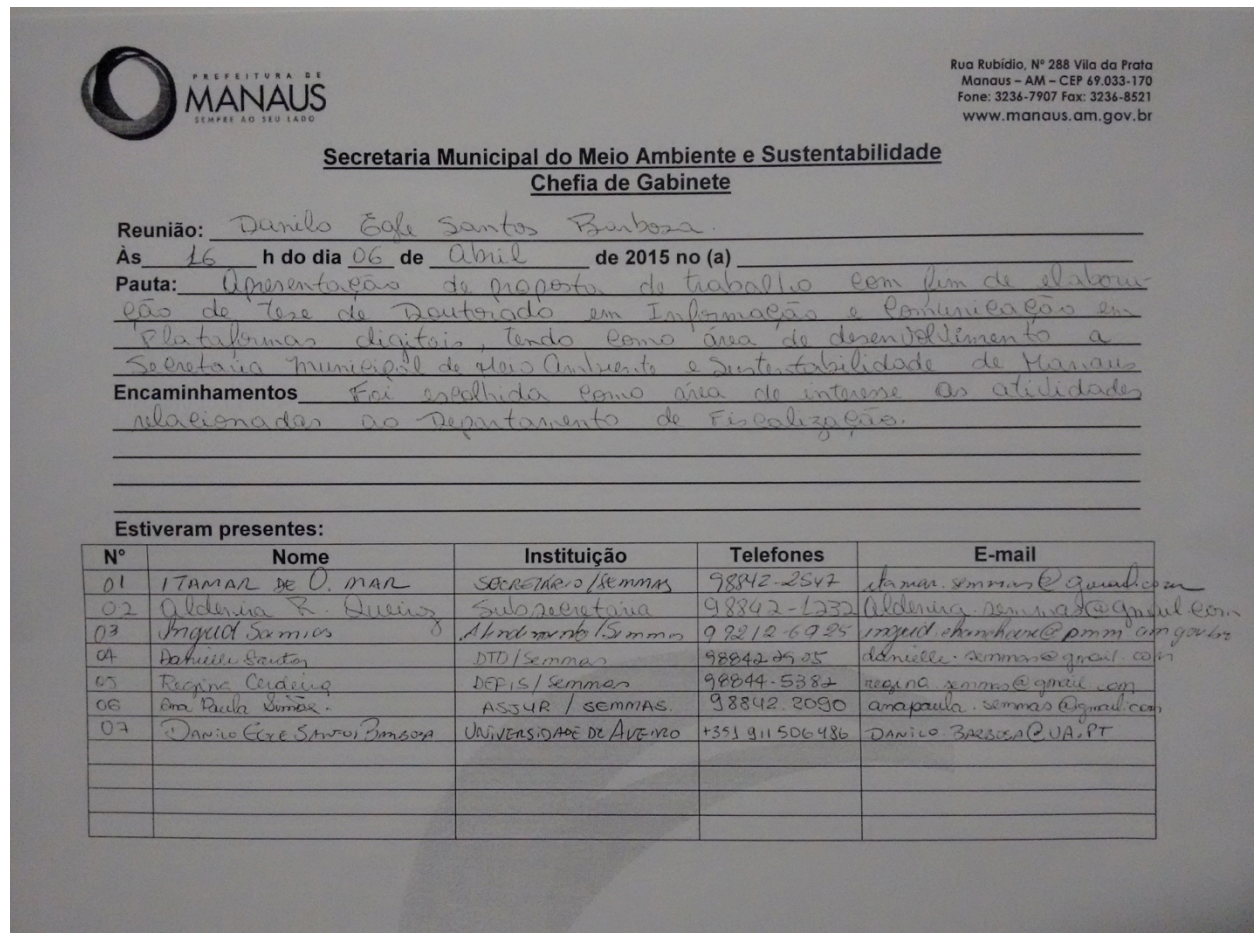 PREFEITURA DE
MANAUS
SEMPRE AO SEU LADO
Rua Rubídio, Nº 288 Vila da Prata
Manaus – AM – CEP 69.033-170
Fone: 3236-7907 Fax: 3236-8521
www.manaus.am.gov.br
Secretaria Municipal do Meio Ambiente e Sustentabilidade
Chefia de Gabinete
Reunião: Danilo Egle Santos Barbosa.
Às 16 h do dia 06 de abril de 2015 no (a)
Pauta: Apresentação de proposta de trabalho com fim de elabora-
ção de tese de Doutorado em Informação e Comunicação em
Plataformas digitais, tendo como área de desenvolvimento a
Secretaria Municipal de Meio Ambiente e Sustentabilidade de Manaus
Encaminhamentos Foi escolhida como área de interesse as atividades
relacionadas ao Departamento de Fiscalização.
Estiveram presentes:
Nº Nome Instituição Telefones E-mail
01 ITAMAR DE O. MAR SECRETÁRIO/SEMMAS 98842-2547 itamar.semmas@gmail.com
02 Aldenira R. Queiroz Subsecretária 98842-1232 aldenira.semmas@gmail.com
03 Ingrid 98212-6925
04 Danielle Santos DTD/Semmas 98842 2905 danielle.semmas@gmail.com
05 Regina Cerdeira DEFIS/Semmas 98844-5382 regina.semmas@gmail.com
06 Ana Paula Simão. ASJUR / SEMMAS. 98842.2090 anapaula.semmas@gmail.com
07 DANILO EGLE SANTOS BARBOSA UNIVERSIDADE DE AVEIRO +351 911506486 DANILO.BARBOSA@UA.PT